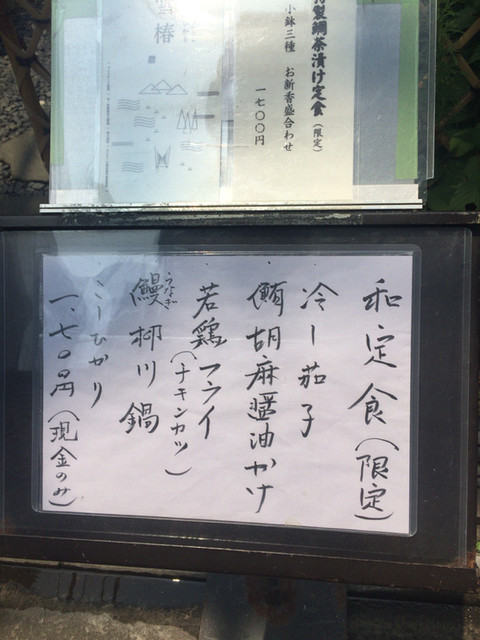 製鯛茶漬け定食（限定）
小鉢三種　お新香盛合わせ
一七〇〇円
椿
和定食（限定）
冷し茄子
鮪胡麻醤油かけ
若鶏フライ
（チキンカツ）
鰻柳川鍋
うなぎ
こしひかり
一、七〇〇円（現金のみ）